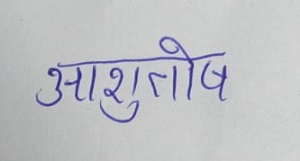 आशुतोष